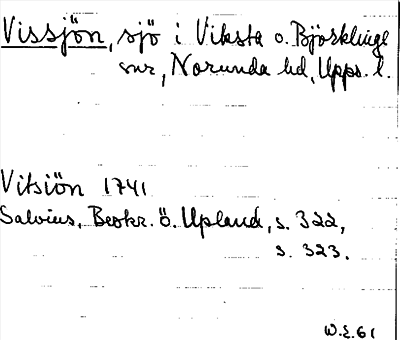 Vissjön, sjö i Viksta o. Björklinge
snr, Norunda hd, Upps. l.
Vitsiön 1741
Salvius, Beskr. ö. Upland, s. 322,
s. 323.
W.E. 61